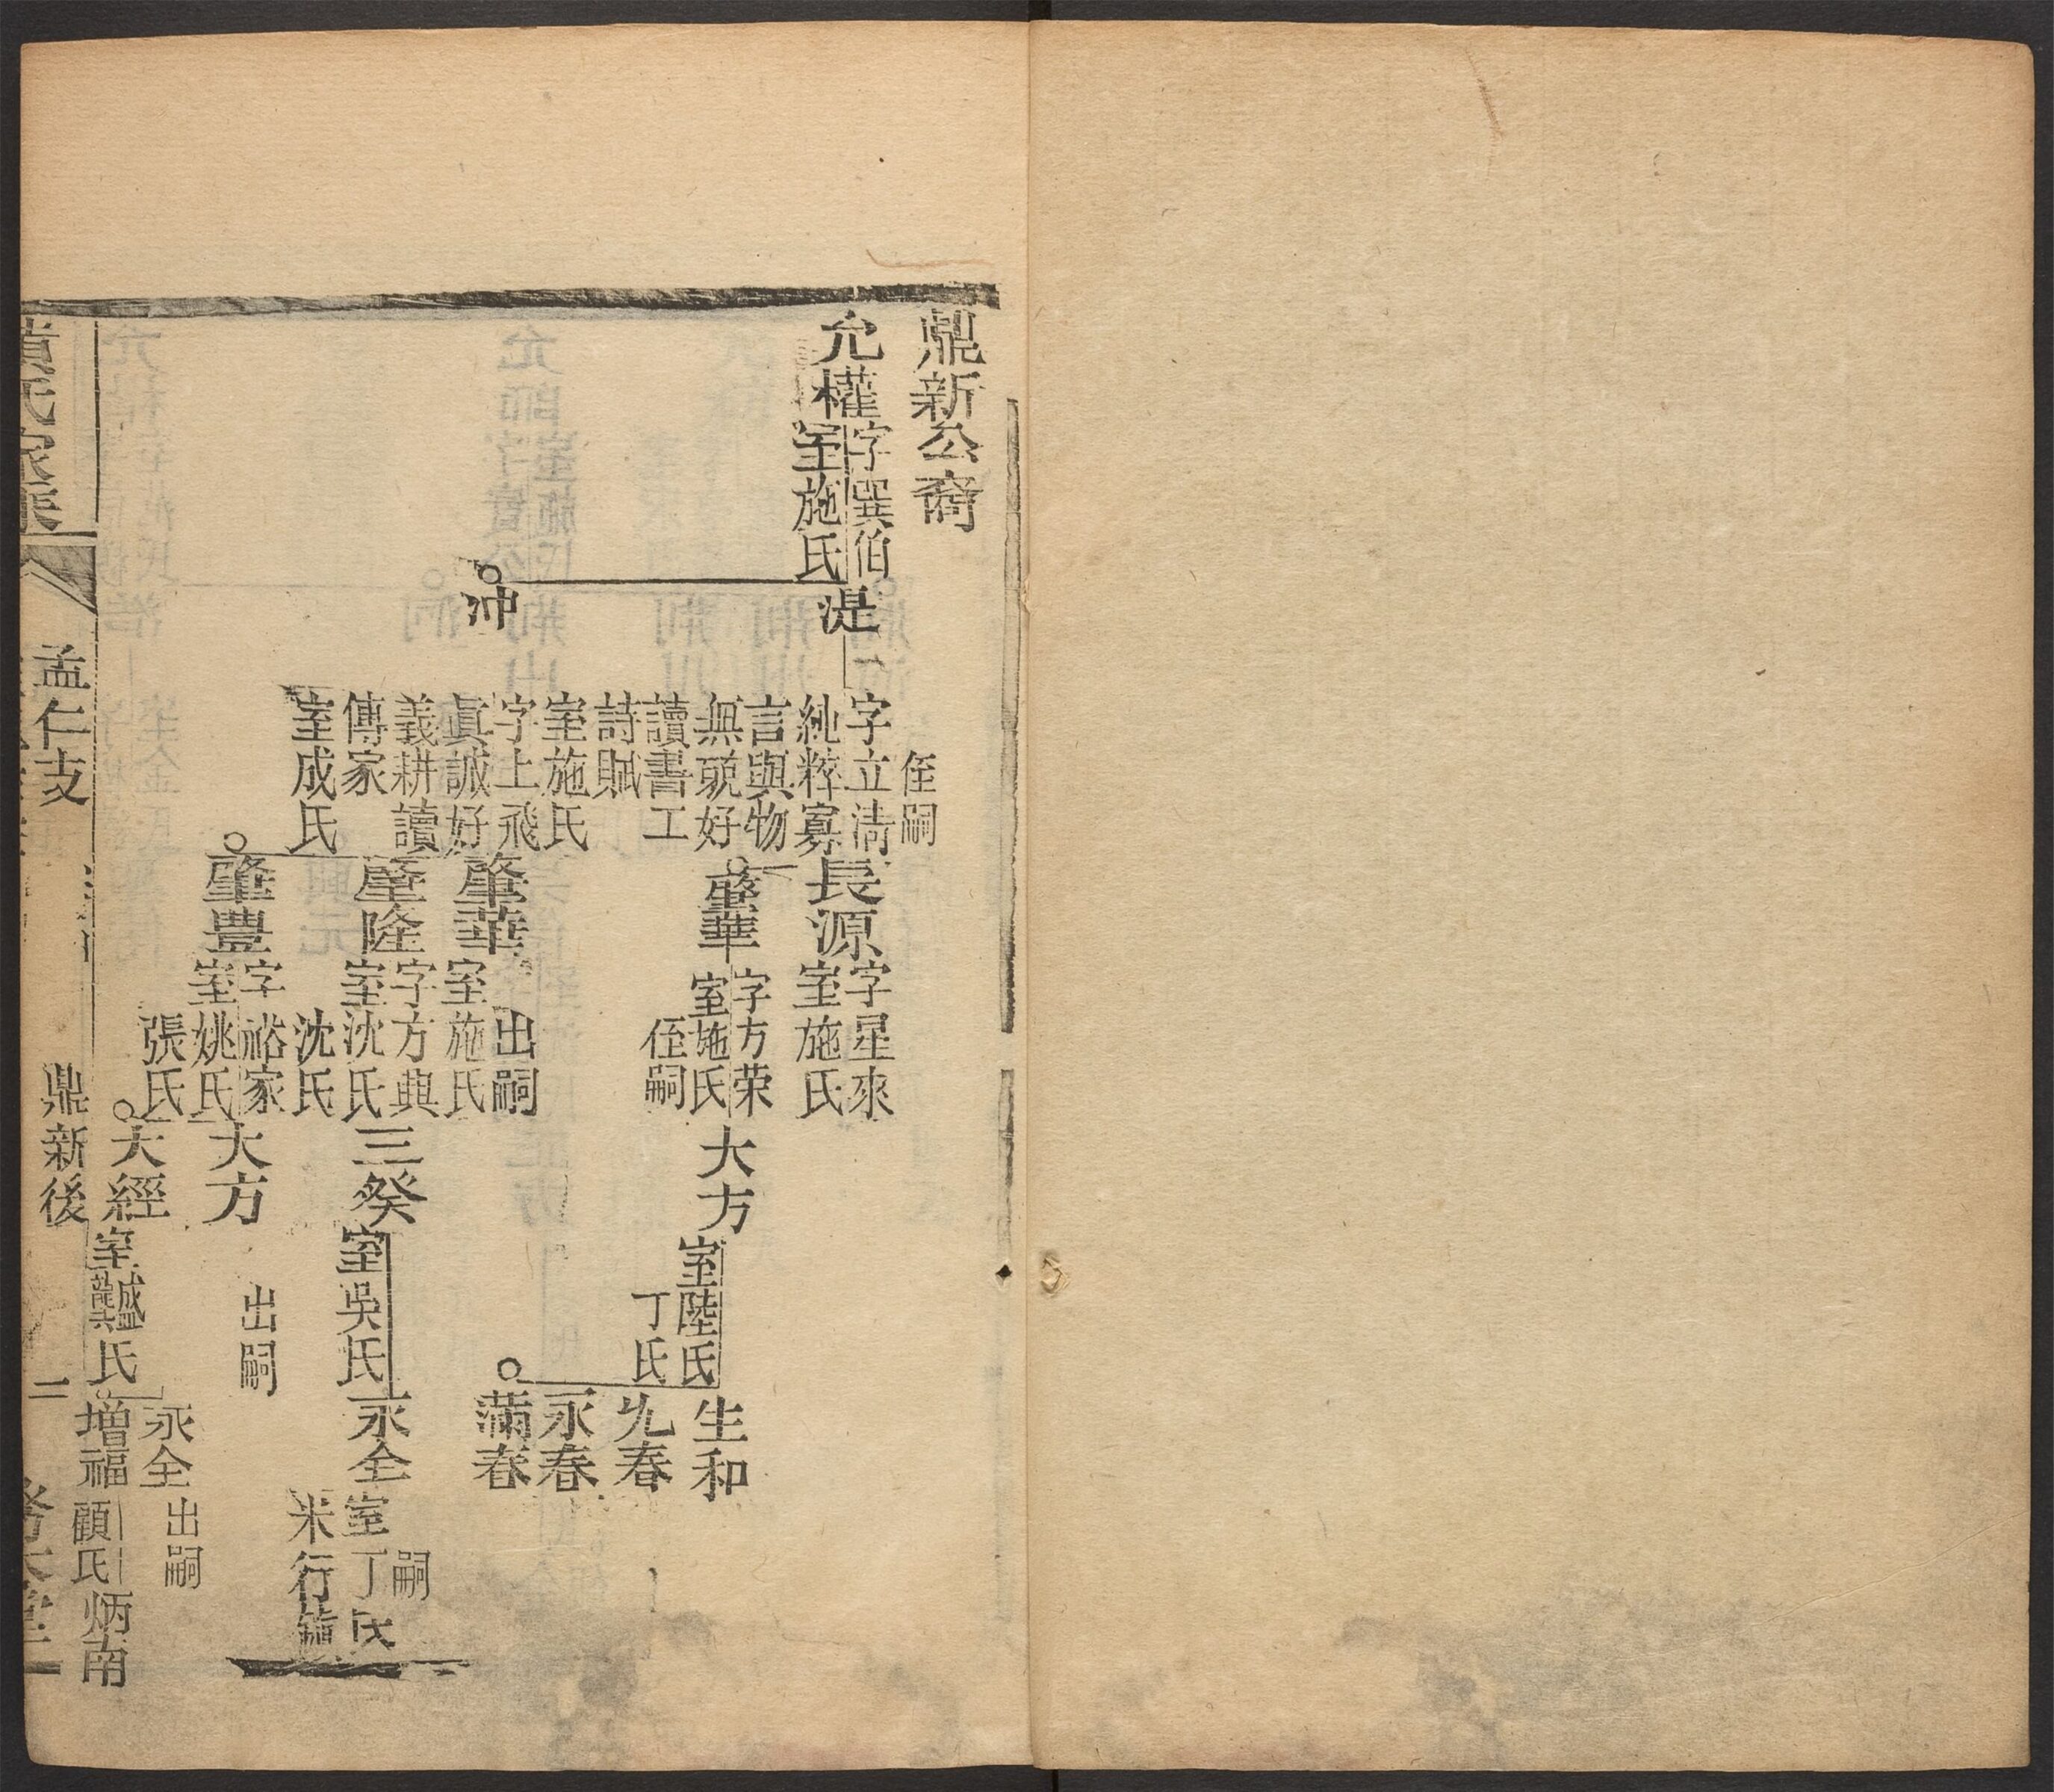 鼎新公裔
允權
字巽伯
室施氏
湜
沖
侄嗣
字立淸
純粹寡
言與物
無競好
讀書工
詩賦
室施氏
字上飛
眞誠好
義耕讀
傳家
室成氏
長源
字星來
室施氏
肇華
字方荣
室施氏
侄嗣
肇華
出嗣
室施氏
肇隆
字方典
室沈氏
沈氏
肇豊
字裕家
室姚氏
張氏
大方
室陸氏
丁氏
三癸
室吳氏
大方
出嗣
大經
室氏
生和
允春
永春
滿春
永全
嗣
室丁氏
米行鎮
永全
出嗣
增福
顧氏
炳南
黃氏家乘
孟仁支
鼎新後
二